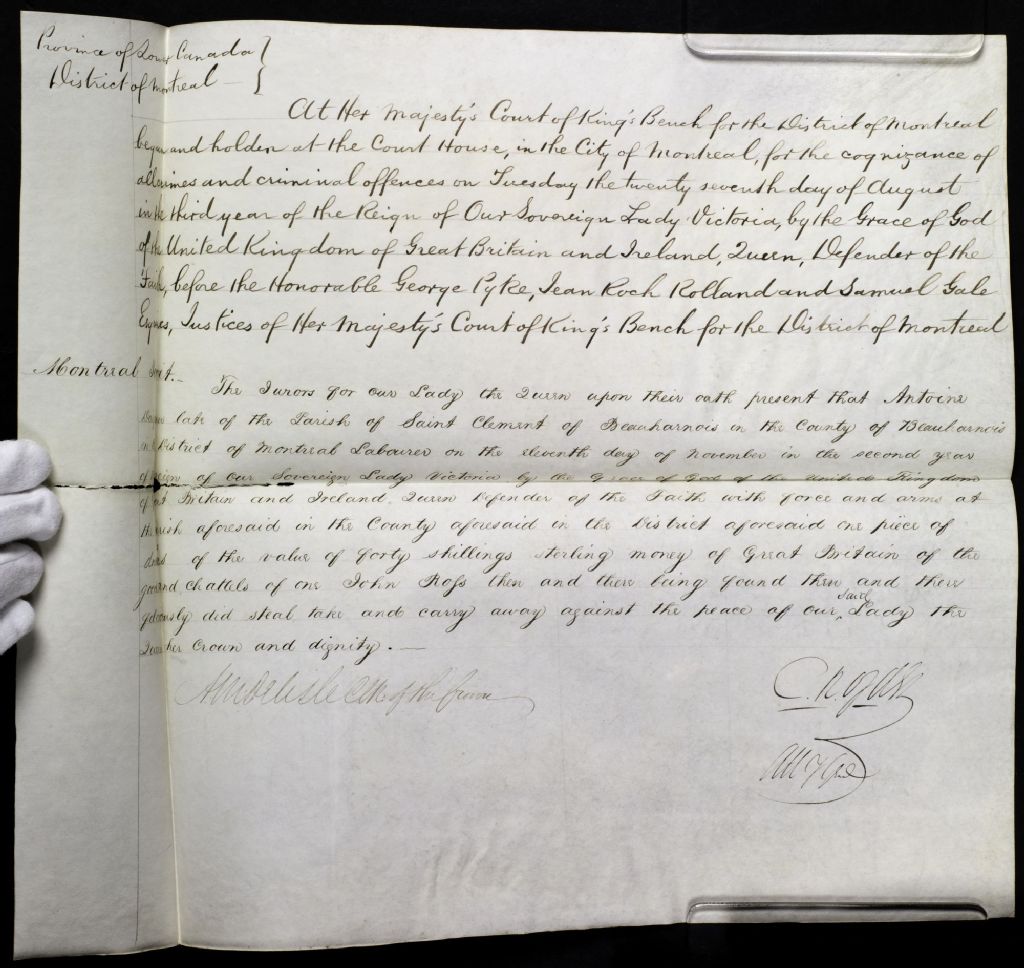 Province of Lower Canada }
District of Montreal — }
At Her Majesty's Court of King's Bench for the District of Montreal
began and holden at the Court House, in the City of Montreal, for the cognizance of
all crimes and criminal offences on Tuesday the twenty seventh day of August
in the third year of the Reign of Our Sovereign Lady Victoria, by the Grace of God
of the United Kingdom of Great Britain and Ireland, Queen, Defender of the
Faith, before the Honorable George Pyke, Jean Roch Rolland and Samuel Gale
Esquires, Justices of Her Majesty's Court of King's Bench for the District of Montreal
Montreal, to wit.–
The Jurors for our Lady the Queen upon their oath present that Antoine
late of the Parish of Saint Clement of Beauharnois in the County of Beauharnois
District of Montreal Labourer on the eleventh day of November in the second year
reign of our Sovereign Lady Victoria by the Grace of God of the United Kingdom
of Britain and Ireland, Queen Defender of the Faith with force and arms at
aforesaid in the County aforesaid in the District aforesaid one piece of
of the value of forty shillings sterling money of Great Britain of the
goods and chattels of one John Ross then and there being found then and there
did steal take and carry away against the peace of our said Lady the
Queen her crown and dignity. —
AM Delisle Clk of the Crown
C. R. Ogden
Att Gen